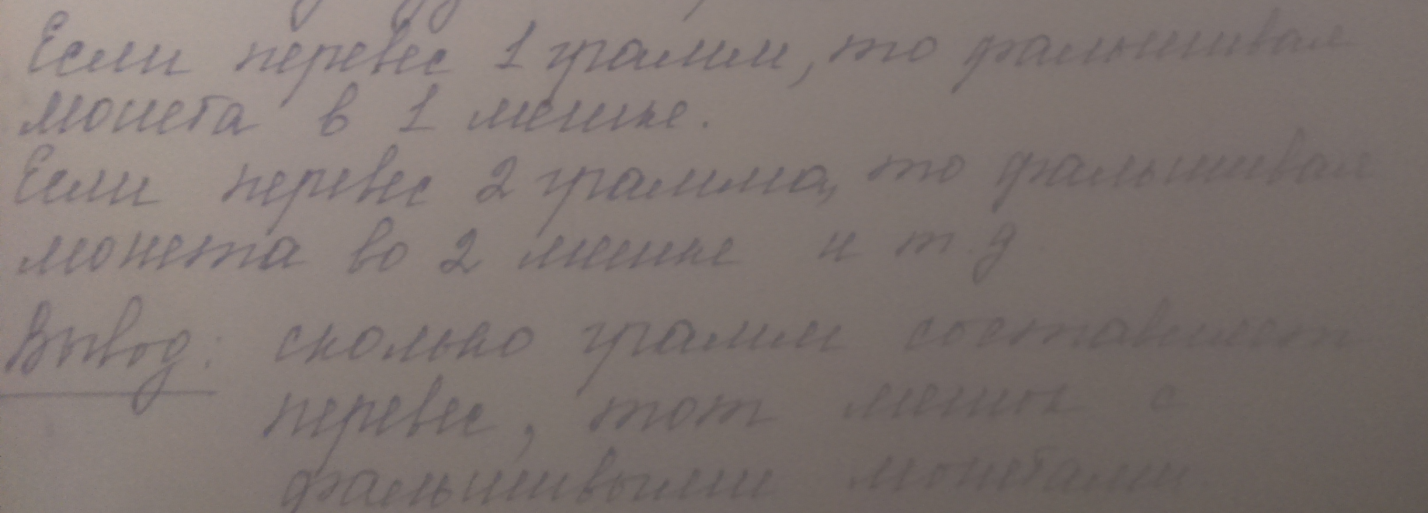 Если перевес 1 грамм, то фальшивая
монета в 1 мешке.
Если перевес 2 грамма, то фальшивая
монета во 2 мешке и т.д
Вывод: сколько грамм составляет
перевес, тот мешок с
фальшивыми монетами